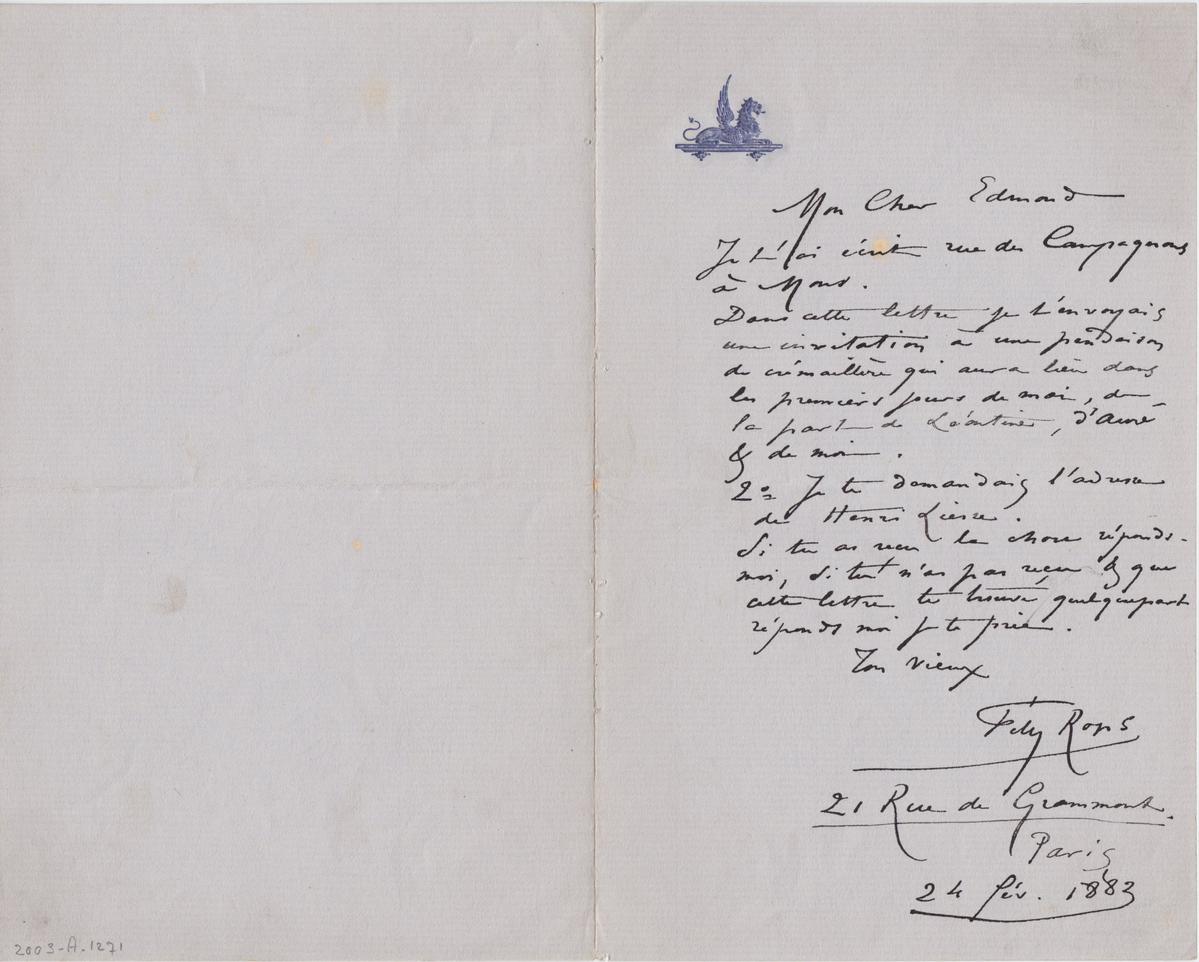 Mon Cher Edmond
Je t'ai écrit rue des Campagnons
à Mons.
Dans cette lettre je t'envoyais
une invitation à une pendaison
de crémaillère qui aura lieu dans
les premiers jours de mai, de
la part de Léontine, d'Aure
& de moi.
2° Je te demandais l'adresse
de Henri Liesse.
Si tu as reçu la chose réponds-
moi, si tu n'as pas reçu & que
cette lettre te trouve quelquepart
réponds moi je te prie.
Ton vieux
Fély Rops
21 Rue de Grammont.
Paris
24 fév. 1883
2003-A.1271